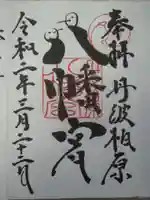 奉拝 丹波柏原
八幡宮
令和二年三月二十二日